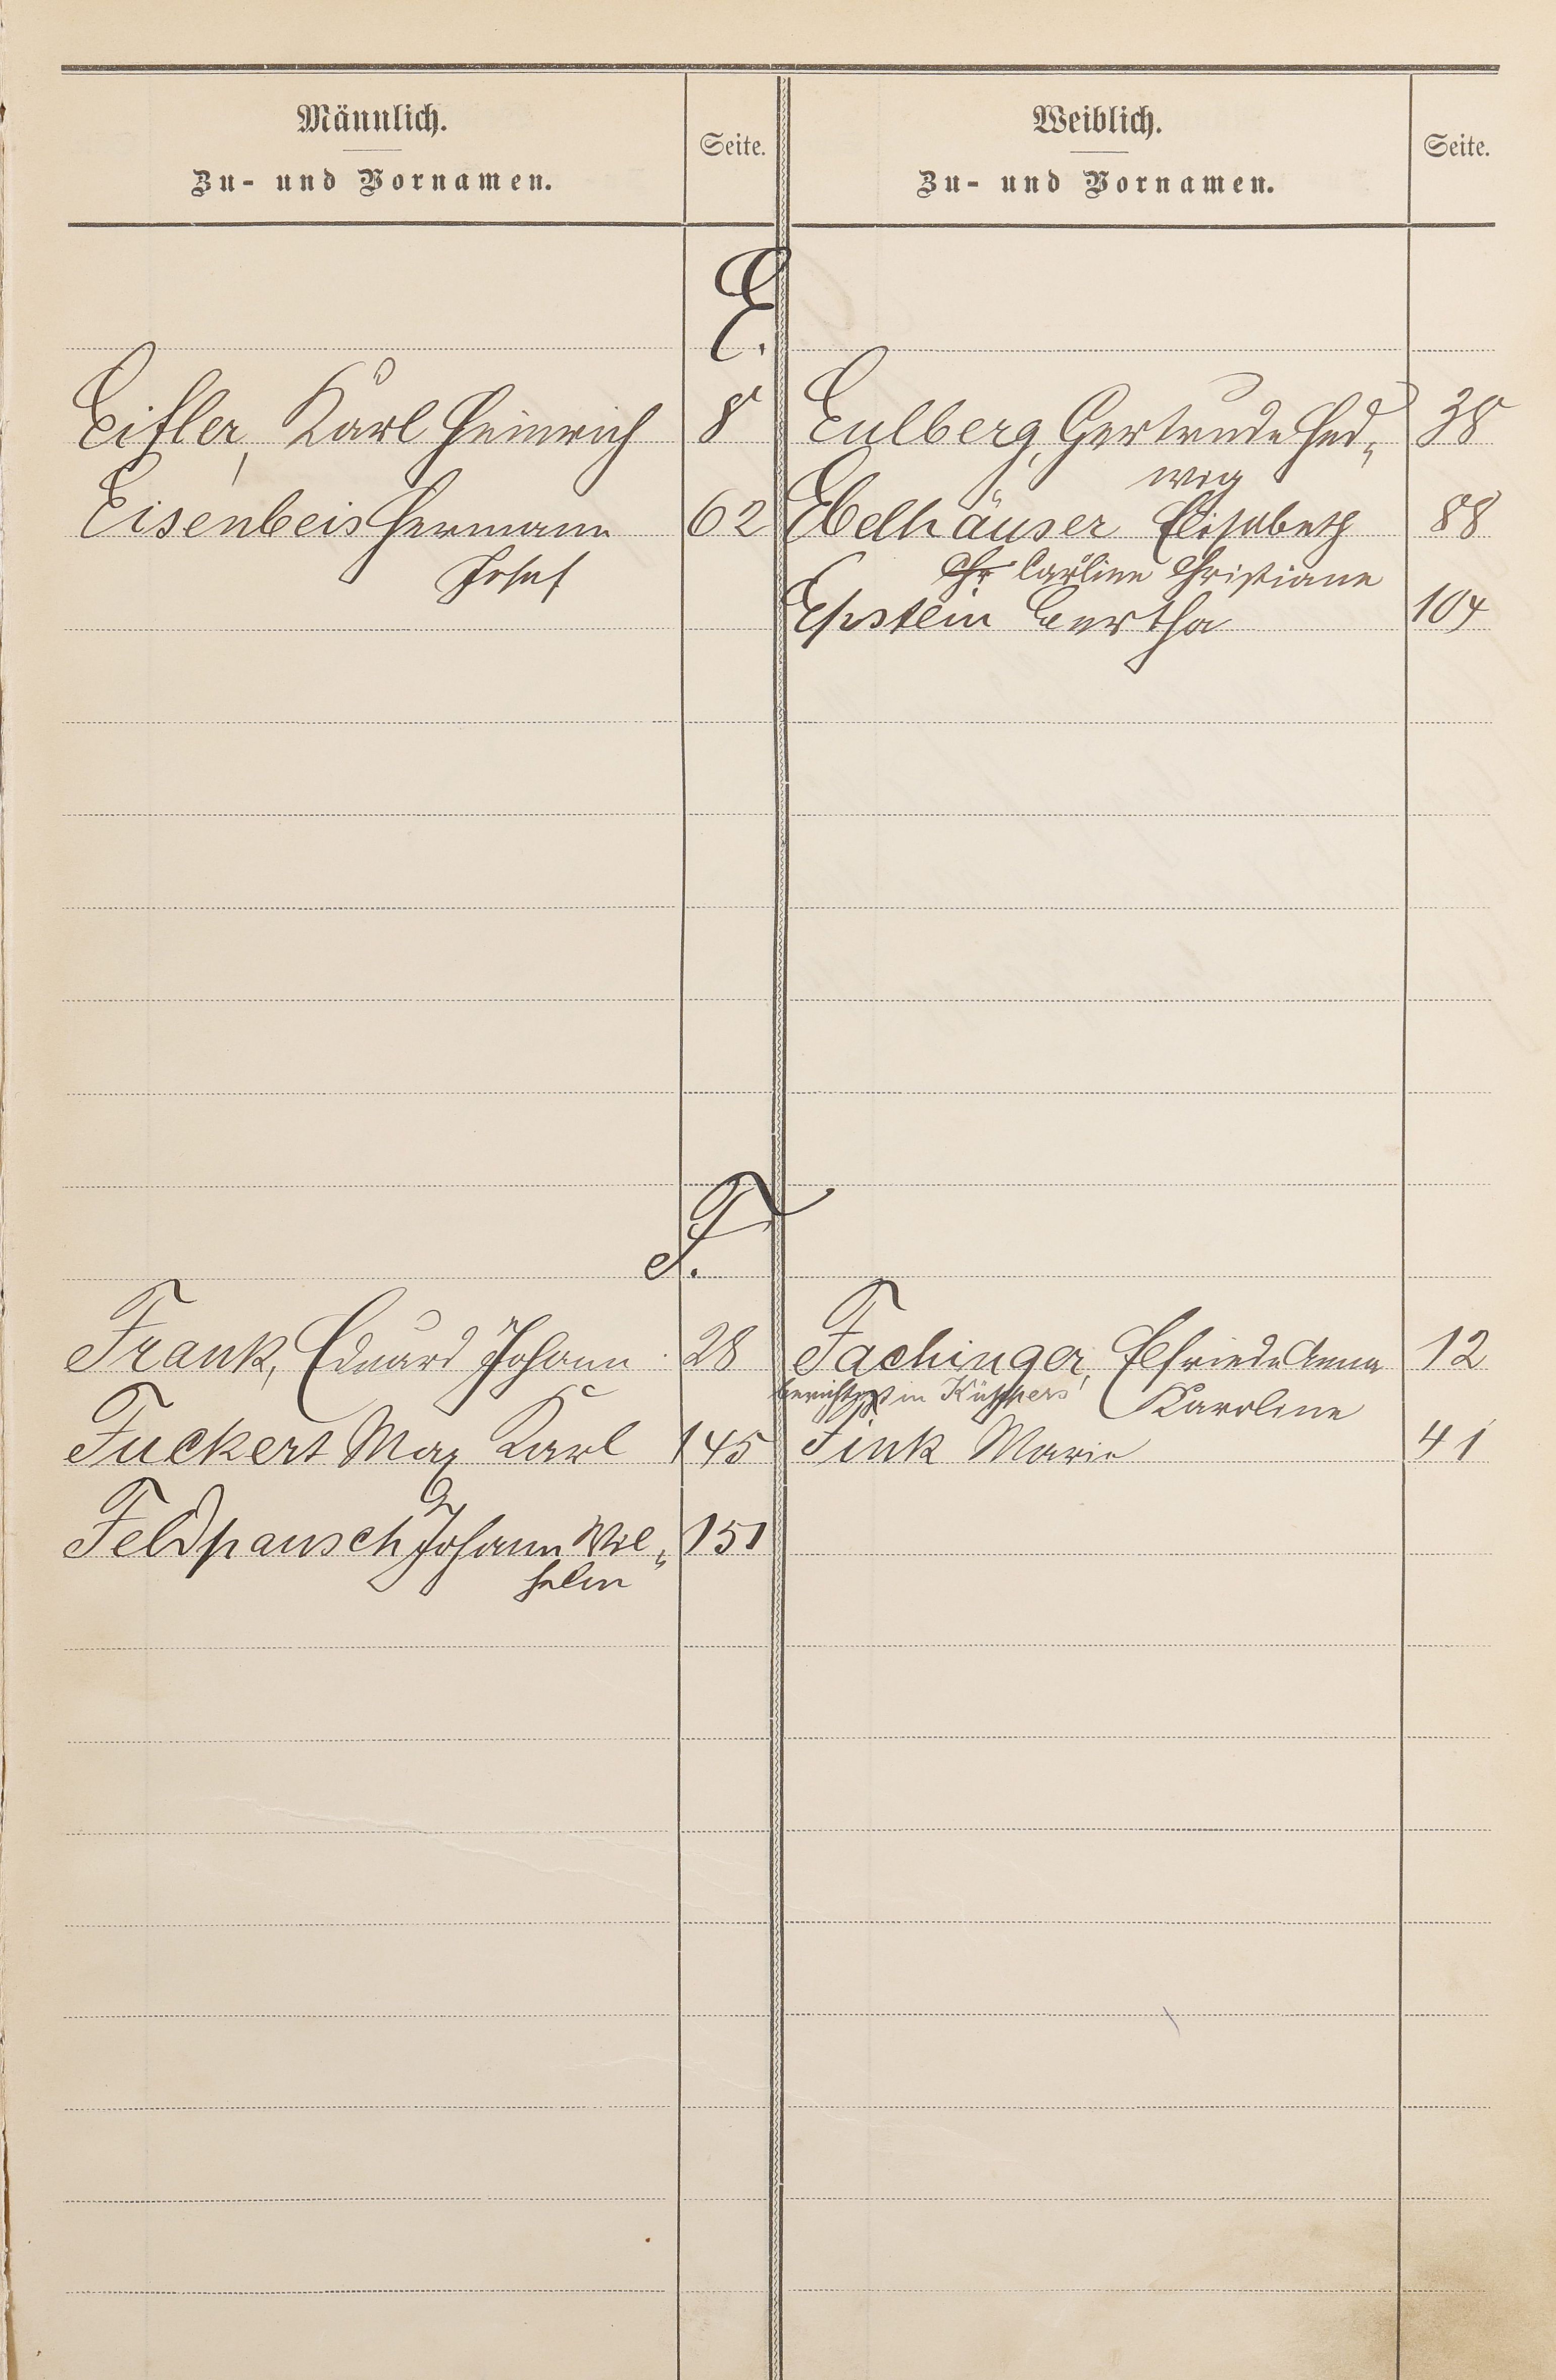 Männlich.
Zu- und Vornamen.
Seite.
Weiblich.
Zu- und Vornamen.
Seite.
E.
Eifler, Karl Heinrich 8 Eulberg, Gertrude Hed„ 38
wig
Eisenbeis Hermann 62 Ebelhäuser Elisabeth 88
Josef Chr Carline Christiane
Epstein Bertha 104
F.
Frank, Eduard Johann 28 Fachinger, Elfriede Anna 12
berichtigt in Küppers Karoline
Fuckert Max Karl 145 Fink Marie 41
Feldpausch Johann Wil„ 151
helm